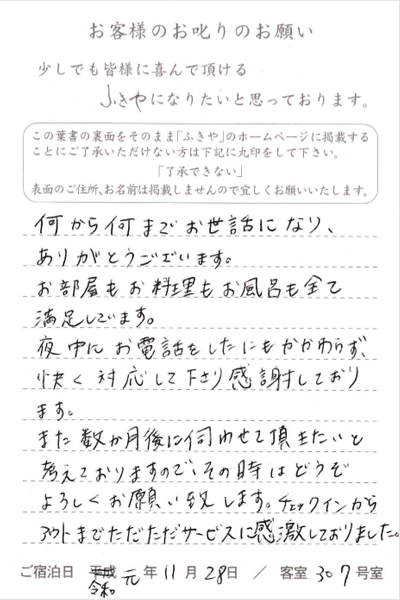 お客様のお叱りのお願い
少しでも皆様に喜んで頂ける
ふきやになりたいと思っております。
この葉書の裏面をそのまま「ふきや」のホームページに掲載する
ことにご了承いただけない方は下記に丸印をして下さい。
「了承できない」
表面のご住所、お名前は掲載しませんので宜しくお願いいたします。
何から何までお世話になり、
ありがとうございます。
お部屋もお料理もお風呂も全て
満足しています。
夜中にお電話をしたにもかかわらず、
快く対応して下さり感謝しており
ます。
また数か月後に伺わせて頂きたいと
考えておりますので、その時はどうぞ
よろしくお願い致します。チェックインから
アウトまでただただサービスに感激しておりました。
ご宿泊日 平成 元年 11月 28日 / 客室 307号室
令和